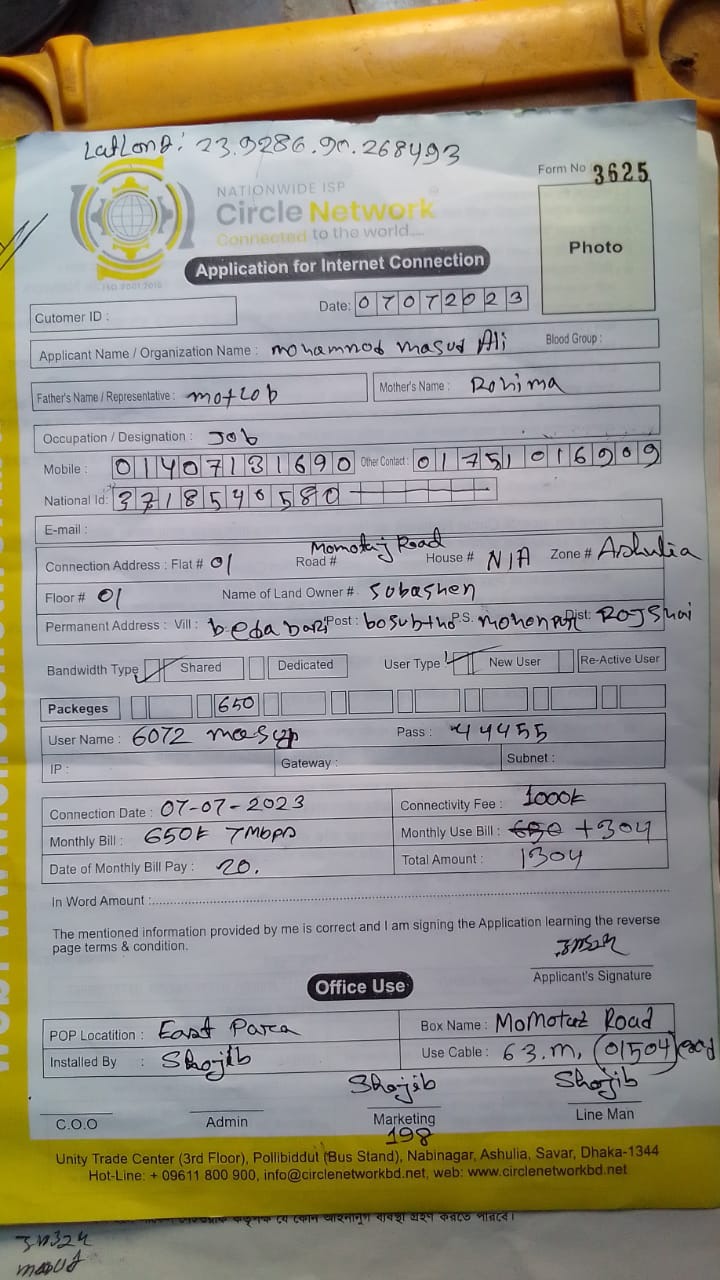 LatLong: 23.9286.90.268493
Form No 3625
NATIONWIDE ISP
Circle Network
Connected to the world....
ISO 9001:2015
Photo
Application for Internet Connection
Cutomer ID :
Date: 07072023
Applicant Name / Organization Name : mohammod masud Ali Blood Group :
Father's Name / Representative : motlob Mother's Name : Rohima
Occupation / Designation : Job
Mobile : 01407131690 Other Contact : 01751016909
National Id: 3718540580
E-mail :
Connection Address : Flat # 01 Road # Momotaj Road House # N/A Zone # Ashulia
Floor # 01 Name of Land Owner # Sobashen
Permanent Address : Vill : beda bari Post : P.S. mohonpur Dist: Rojshai
Bandwidth Type Shared Dedicated User Type New User Re-Active User
Packeges 650
User Name : 6072 Pass : 44455
IP : Gateway : Subnet :
Connection Date : 07-07-2023 Connectivity Fee : 1000t
Monthly Bill : 650t 7Mbps Monthly Use Bill : +304
Date of Monthly Bill Pay : 20. Total Amount : 1304
In Word Amount :
The mentioned information provided by me is correct and I am signing the Application learning the reverse
page terms & condition.
Applicant's Signature
Office Use
POP Locatition : East Para Box Name : Momotaz Road
Installed By : Shojib Use Cable : 63.m, 01504 end
Shojib Shojib
C.O.O Admin Marketing Line Man
198
Unity Trade Center (3rd Floor), Pollibiddut (Bus Stand), Nabinagar, Ashulia, Savar, Dhaka-1344
Hot-Line: + 09611 800 900, info@circlenetworkbd.net, web: www.circlenetworkbd.net
masud